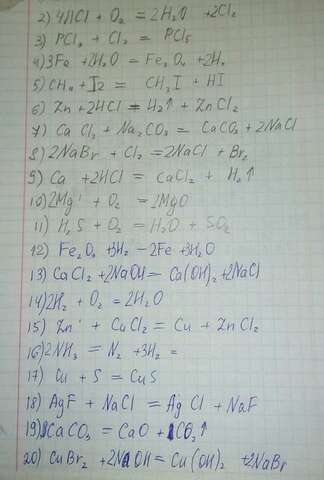 2) 4HCl + O₂ = 2H₂O + 2Cl₂
3) PCl₃ + Cl₂ = PCl₅
4) 3Fe + 2H₂O = Fe₃O₄ + 2H₂
5) CH₄ + I₂ = CH₃I + HI
6) Zn + 2HCl = H₂↑ + ZnCl₂
7) CaCl₂ + Na₂CO₃ = CaCO₃ + 2NaCl
8) 2NaBr + Cl₂ = 2NaCl + Br₂
9) Ca + 2HCl = CaCl₂ + H₂↑
10) 2Mg + O₂ = 2MgO
11) H₂S + O₂ = H₂O + SO₂
12) Fe₂O₃ + 3H₂ – 2Fe + 3H₂O
13) CaCl₂ + 2NaOH = Ca(OH)₂ + 2NaCl
14) 2H₂ + O₂ = 2H₂O
15) Zn + CuCl₂ = Cu + ZnCl₂
16) 2NH₃ = N₂ + 3H₂ =
17) Cu + S = CuS
18) AgF + NaCl = AgCl + NaF
19) CaCO₃ = CaO + CO₂↑
20) CuBr₂ + 2NaOH = Cu(OH)₂ + 2NaBr